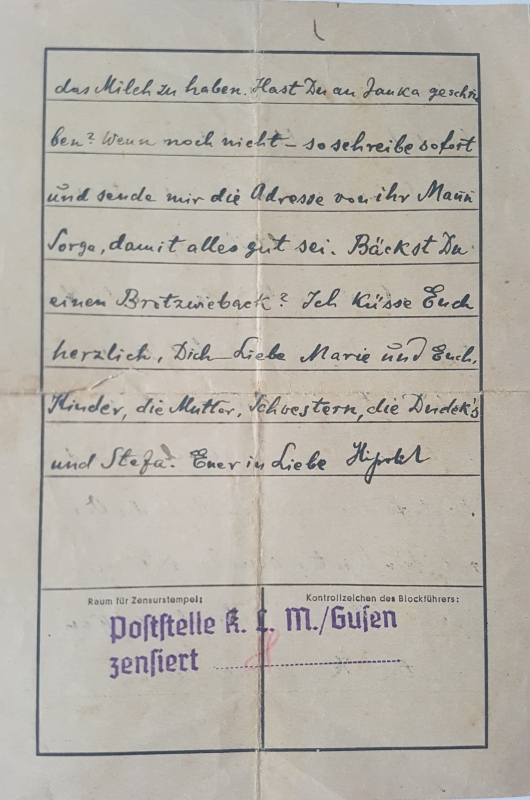 das Milch zu haben. Hast Du an Janka geschrie
ben? Wenn noch nicht – so schreibe sofort
und sende mir die Adresse von ihr Mann
Sorge, damit alles gut sei. Bäckst Du
einen Brotzwieback? Ich küsse Euch
herzlich, Dich – Liebe Marie und Euch,
Kinder, die Mutter, Schwestern, die Dudek's
und Stefa. Euer in Liebe Hipolit
Raum für Zensurstempel:
Kontrollzeichen des Blockführers:
Poststelle K. L. M./Gusen
zensiert